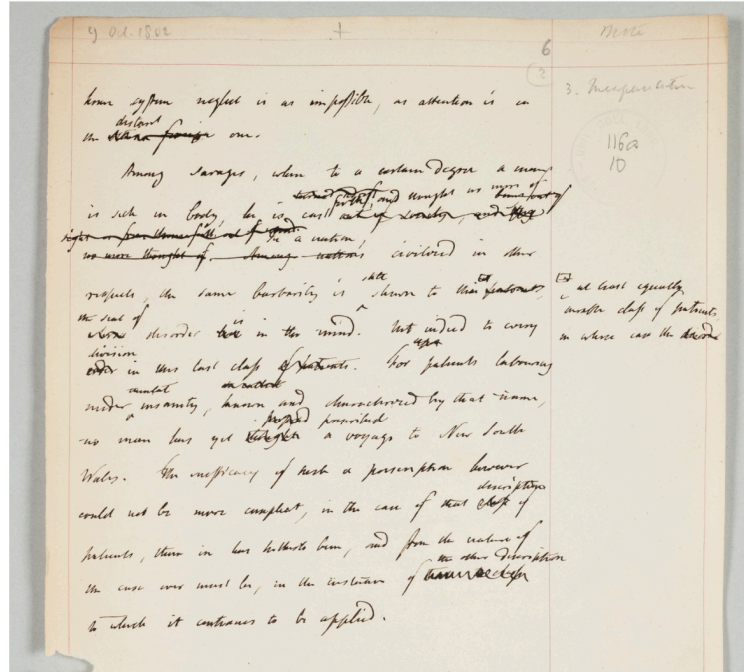 9 Oct. 1802 + Note
6
2
3. Incapacitation
116a
10
home system neglect is as impossible, as attention is in
distant
the one.
Among savages, when to a certain degree a man
is sick in body, he is cast forth, and thought no more of
no more thought of. Among nations
In a nation, civilized in other
respects, the same barbarity is still shewn to that
at least equally
pitiable class of patients,
in whose case the
the seat of
disorder is in the mind. Not indeed to every
division in this last class of patients. For patients labouring
under mental insanity, so called, known and characterized by that name,
no man has yet proposed prescribed a voyage to New South
Wales. The inefficacy of such a prescription however
could not be more compleat, in the case of that description of
patients, than it has hitherto been, and from the nature of
the case ever must be, in the instance of the other description
to which it continues to be applied.